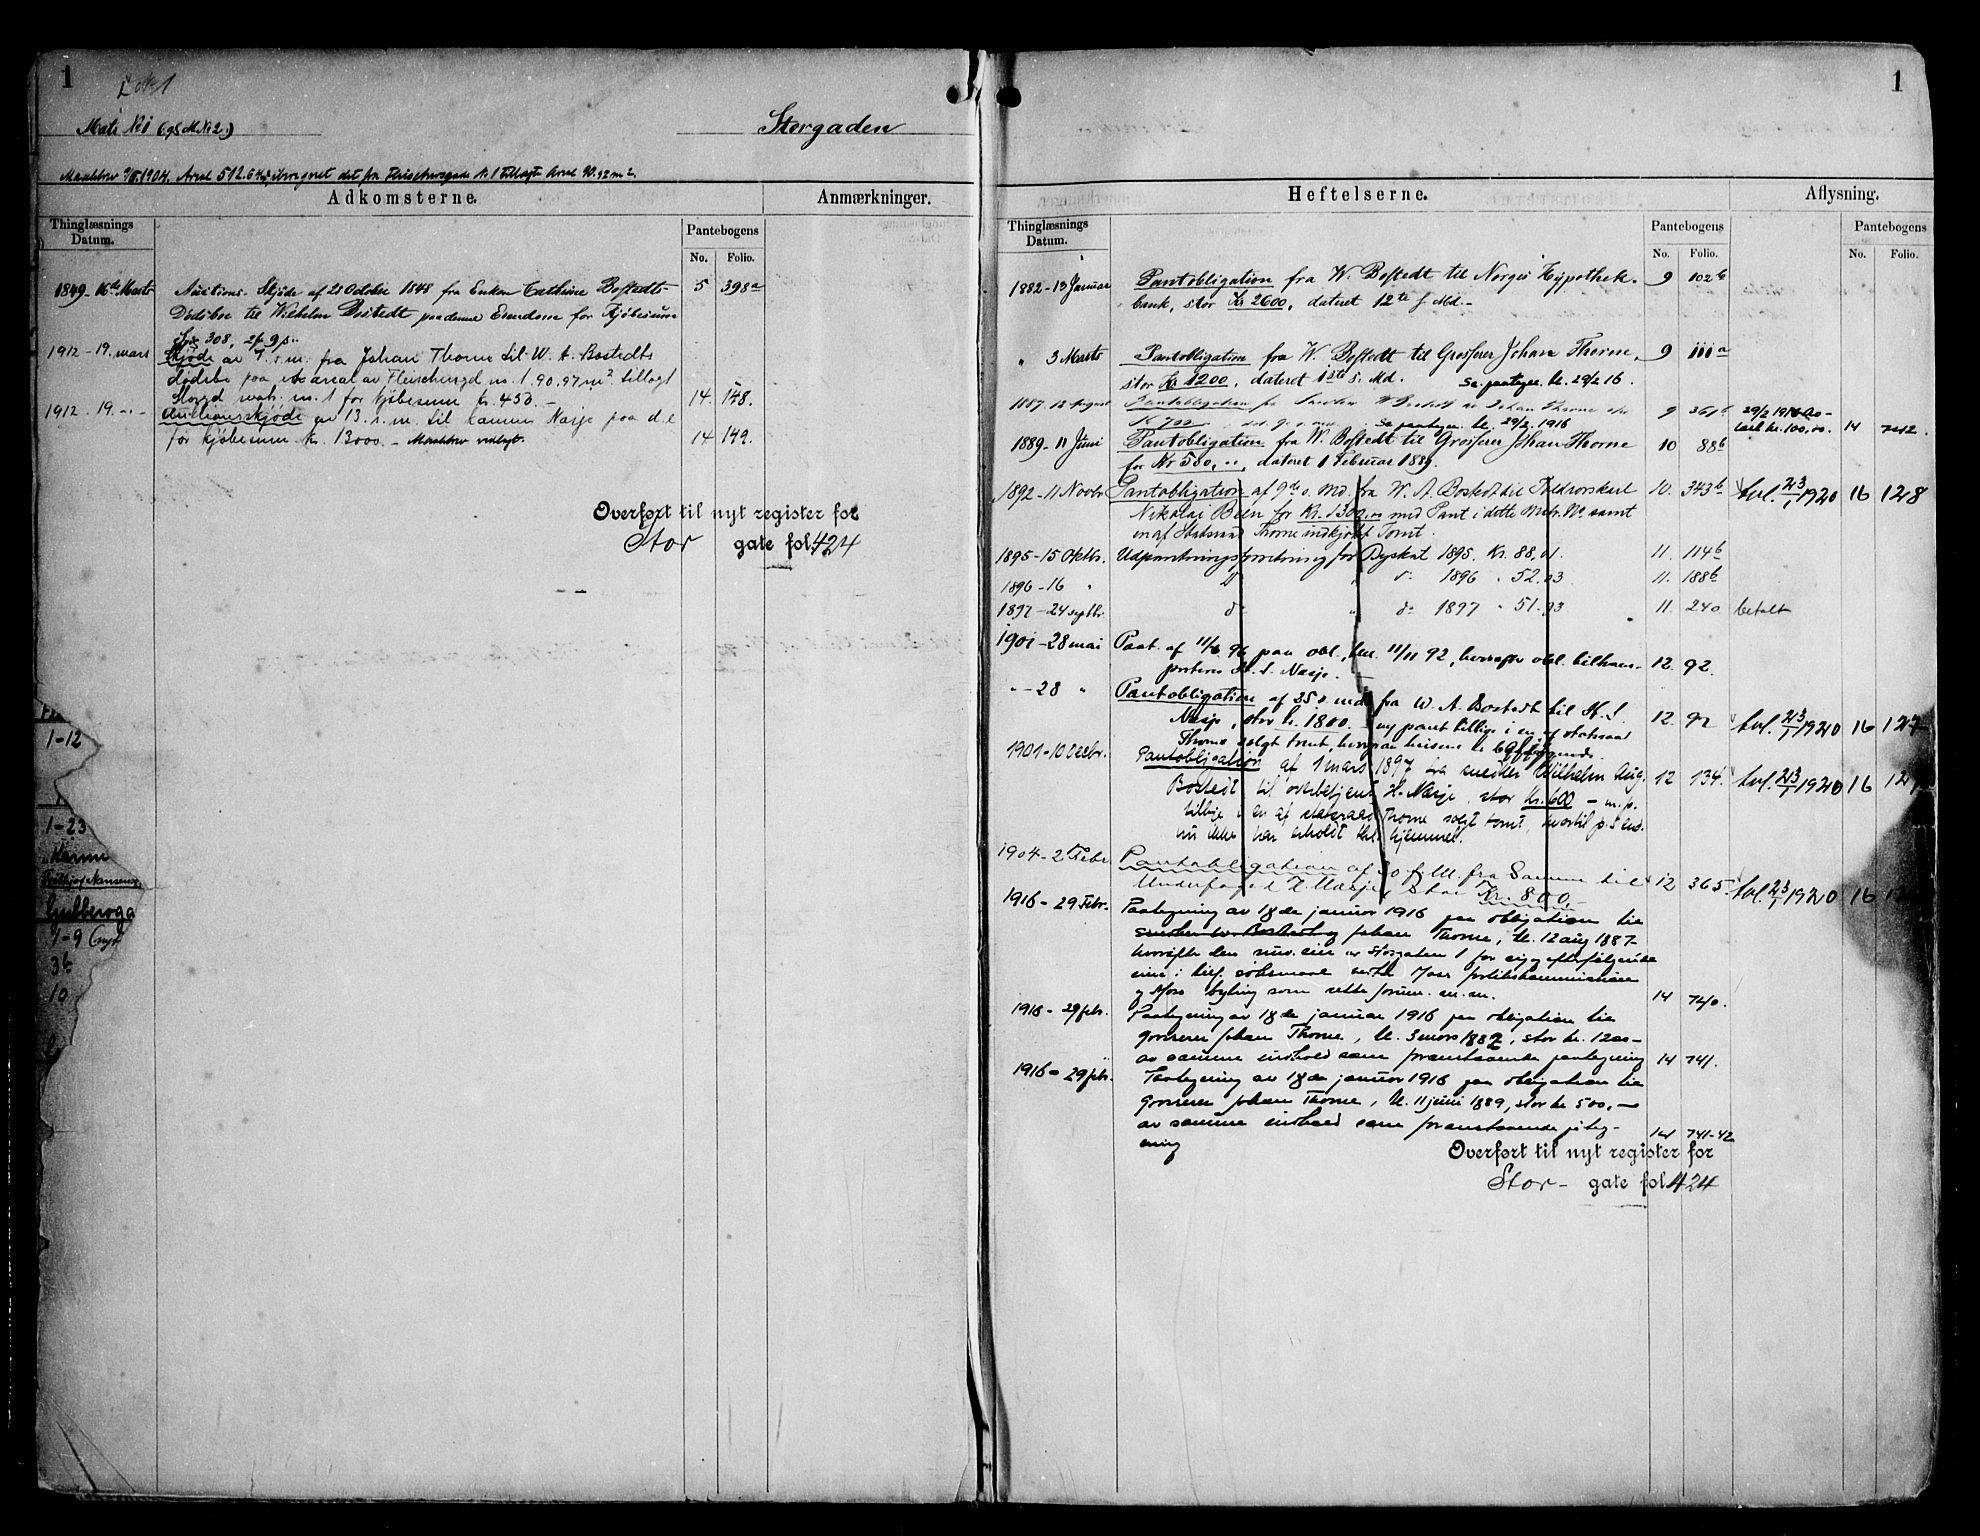 1
Mat: No 1 (gl M No 2.)
Storgaden
Areal 512.64 m², iberegnet det fra Fleischersgade No 1 tillagte Areal 90.92 m²
Adkomsterne.
Anmærkninger.
Thinglæsnings Datum.
Pantebogens
No. Folio.
1849 - 16de Marts Auctions-Skjøde af 21 October 1848 fra Enken Cathrine Bostedts 5 398a
Dødsbo til Wilhelm Bostedt paa denne Eiendom for Kjøbesum
Spd 308,
1912 - 19. mars Skjøde av 7. s. m. fra Johan Thorne til W. A. Bostedts
dødsbo paa et areal av Fleischersgd nr. 1. 90.97 m² tillagt
Storgd matr. nr. 1 for kjøbesum kr. 450. - 14. 148.
1912 - 19. - " - Auktionsskjøde av 13. s. m. til Hannes Næsje paa d. e
for kjøbesum kr. 13000. - Maalebrev vedlagt. 14 149.
Overført til nyt register for
Stor gate fol. 424
1-12
1-23
Karine
Fridtjof Nansensg
Gulbergga
7-9 (nyt
3b
10
1
Heftelserne.
Aflysning.
Thinglæsnings Datum.
Pantebogens
No. Folio.
Pantebogens
No. Folio.
1882 - 13 Januar Pantobligation fra W. Bostedt til Norges Hypothek- 9 102b
bank, stor Kr 2600, dateret 12te s. Md. -
" 3 Marts Pantobligation fra W. Bostedt til Grosserer Johan Thorne, 9 111a
stor Kr 1200, dateret 1ste s. Md. Se paategn. tl. 29/2 16.
1887 - 12 August Pantobligation fra Snedker W Bostedt til Johan Thorne stor 9 361b 29/2 1916 Av-
Kr 700 Se paategn. tl. 29/2. 1916 kr. 100,00. 14 742.
1889 - 11 Juni Pantobligation fra W. Bostedt til Grosserer Johan Thorne 10 88b
for Kr 500, "", dateret 1 Februar 1889.
1892 - 11 Novbr Pantobligation af 9de s. Md. fra W. A. Bostedt til 10. 343b Avl. 23/1 1920 16 128
Nikolai Been for Kr. 1300,00 med Pant i dette Matr. No samt
en af Statsraad Thorne indkjøbt Tomt.
1895 - 15 Oktbr. Udpantningsforretning for Byskat 1895. Kr. 88,01. 11. 114b
1896 - 16 " do " do 1896 " 52.03 11. 188b
1897 - 24 septbr. do " do 1897 " 51.93 11. 240 betalt
1901 - 28 mai Paat. af 11/6 96 paa obl., tinl. 11/11 92, hvorefter obl. tiltrans- 12. 92.
porteres H. S. Næsje.
" - 28 " Pantobligation af 25 s. md. fra W. A. Bostedt til H. S. 12. 92 Avl. 23/1 1920 16 127
Næsje, stor kr. 1800. - og pant tillige i en af statsraad
Thorne solgt tomt,
1901 - 10 Decbr. Pantobligation af 1 mars 1897 fra snedker Wilhelm Aug. 12 134 Avl. 23/1 1920 16 127
Bostedt til overbetjent H. Næsje, stor Kr. 600 - m. p.
tillige i en af statsraad Thorne solgt tomt, hvortil p.
nu ikke har erholdt thl. hjemmel.
1904 - 2 Febr. Pantobligation fra Samme til 12 365 Avl. 23/1 1920 16
H. Næsje, stor Kr. 800.-
1916 - 29 Febr. Paategning av 18de januar 1916 paa obligation til
Johan Thorne, tl. 12 aug 1887
hvorefter den nuv. eier av Storgaten 1 for sig og efterfølgende
eiere i tilf. søksmaal vedta Moss forlikskommission
og Moss byting som rette forum. m. m. 14 740.
1916 - 29 febr. Paategning av 18de januar 1916 paa obligation til
grosserer Johan Thorne, tl. 3 mars 1882, stor kr. 1200 -
av samme indhold som foranstaaende paategning 14 741.
1916 - 29 febr. Paategning av 18de januar 1916 paa obligation til
grosserer Johan Thorne, tl. 11 juni 1889, stor kr 500, -
av samme indhold som foranstaaende pateg-
ning 14 741-42
Overført til nyt register for
Stor - gate fol. 424